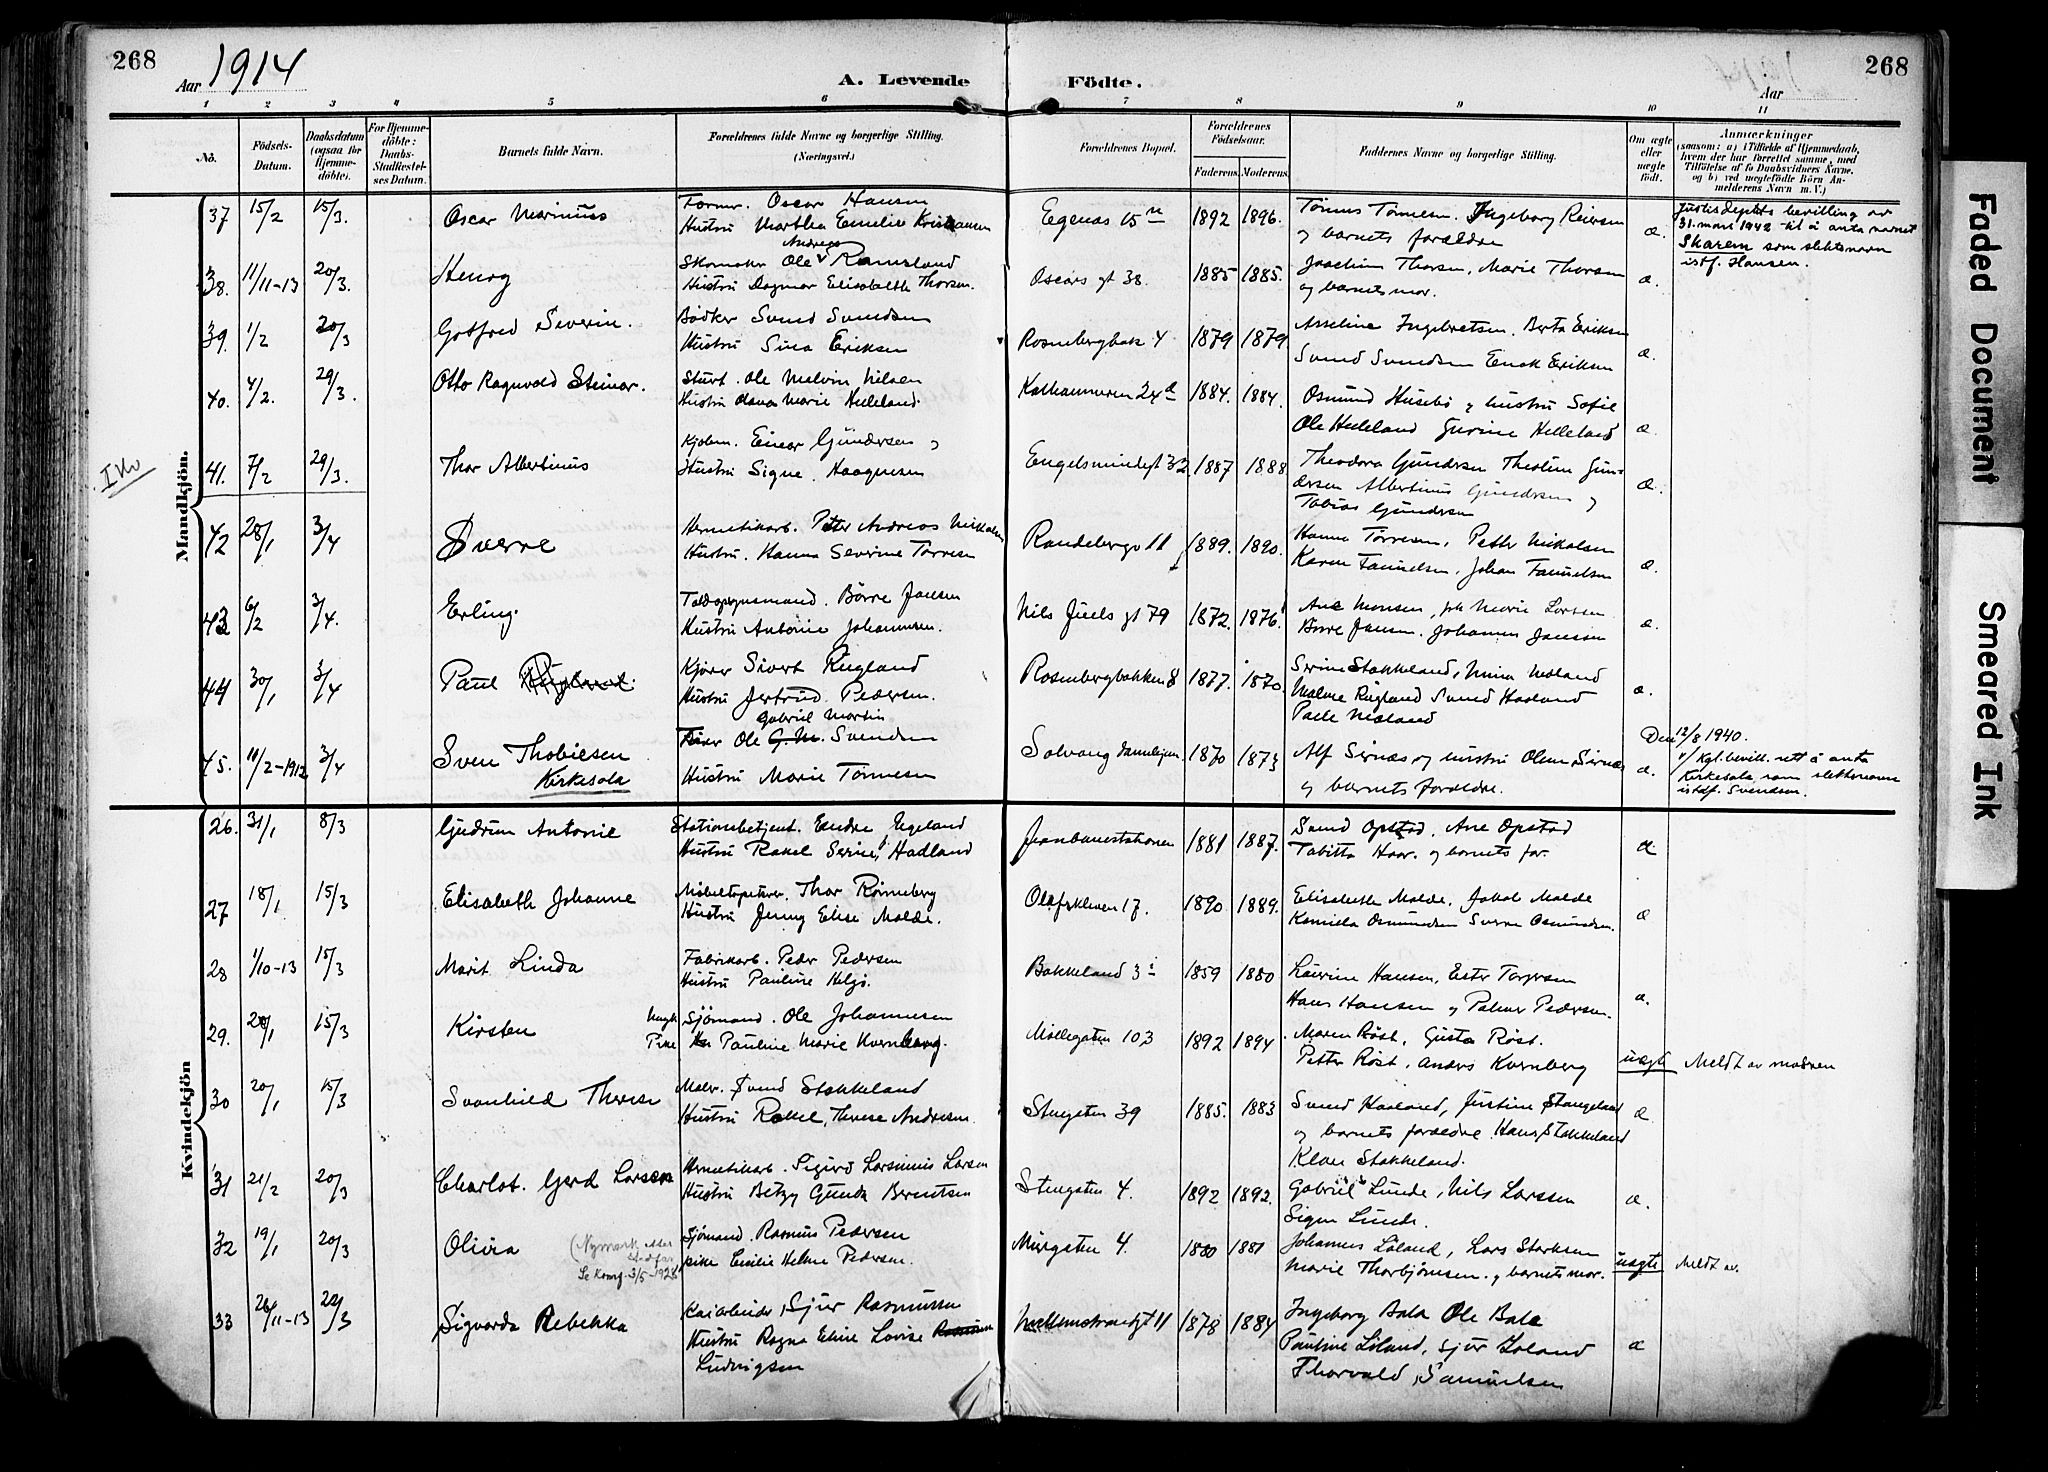 268
Aar 1914
A. Levende Födte.
Aar
268
1 2 3 4 5 6 7 8 9 10 11
No.
Födsels-Datum.
Daabsdatum (ogsaa for Hjemme-döbte).
For Hjemme-döbte: Daabs-Stadfæstel-ses Datum.
Barnets fulde Navn.
Forældrenes fulde Navne og borgerlige Stilling. (Næringsvei.)
Forældrenes Bopæl.
Forældrenes Födselsaar.
Faderens. Moderens.
Faddernes Navne og borgerlige Stilling.
Om ægte eller uægte födt.
Anmærkninger
(saasom: a) i Tilfælde af Hjemmedaab, hvem der har forrettet samme, med Tilföielse af to Daabsvidners Navne, og b) ved uægtefödte Börn An-melderens Navn m. V.)
Mandkjön.
37 15/2 15/3. Oscar Marinius
Formr. Oscar Hansen
Hustru Martha Emelie Kristiansen
Egenæs 15
1892 1896.
Tönnes Tönnesen. Ingeborg Reiersen
og barnets forældre
æ.
Justisdepts bevilling av
31. mars 1942 til å anta navnet
Skarem som slektsnavn
istf. Hansen.
38. 11/11-13 20/3. Henry
Skomaker Ole Andreas Ramsland
Hustru Dagmar Elisabeth Thorsen.
Oscars gt 38.
1885 1885.
Joachim Thorsen, Marie Thorsen
og barnets mor.
æ.
39. 1/2 20/3 Gotfred Severin.
Bödker Svend Svendsen
Hustru Sina Eriksen
Rosenbergbak 4
1879 1879
Asseline Ingebretsen. Berta Eriksen
Svend Svendsen Enok Eriksen
æ.
40. 4/2. 29/3. Otto Ragnvald Steinar.
Stuert. Ole Melvin Nilsen
Hustru Olava Marie Helleland.
Kolhammeren 24a
1884. 1884.
Osmund Husebö og hustru Sofie
Ole Helleland Gurine Helleland
æ.
41. 7/2 29/3. Thor Albertinius
Kjobm. Einar Gundersen
Hustru Signe Haagensen
Engelsmindegt 32
1887 1888
Theodora Gundersen Theoline Gun-
dersen Albertinius Gundersen og
Tobias Gundersen
æ.
42 28/1 3/4 Sverre
Hermetikarb. Peter Andreas Nikolaisen
Hustru. Hanna Severine Torresen
Randebergv 11
1889. 1890.
Hanna Törresen, Petter Nikolsen
Karen Samuelsen, Johan Samuelsen
æ.
43 6/2 3/4. Erling.
Toldopsynsmand. Börre Jansen
Hustru Antonie Johannesen.
Nils Juels gt 79
1872. 1876
Ane Monsen, Marie Larsen
Börre Jansen. Johannes Jansen
æ.
44 30/1 3/4 Paul
Kjörer Sivert Rugland
Hustru Jertrud Pedersen.
Rosenbergbakken 8
1877. 1870.
Serine Stokkeland, Mina Moland
Malene Rugland Svend Haaland
Palle Moland
æ.
45. 11/2-1912 3/4 Sven Thobiesen
Kirkesola
Gabriel Martin
Ole G. M. Svendsen
Hustru Marie Tönnesen
Solvang
1870 1873
Alf Sirnæs og hustru Olene Sirnæs
og barnets forældre.
æ.
Den 12/8 1940.
v/ Kgl. bevill. rett å anta
Kirkesola som slektsnavn
istdf. Svendsen.
Kvindekjön
26. 31/1 8/3 Gudrun Antonie
Stationsbetjent. Endre Egeland
Hustru Rakel Serine Hadland
Jernbanestationen
1881 1887.
Svend Opstad, Ane Opstad
Tabitta Haar. og barnets for.
æ.
27 18/1 15/3 Elisabeth Johanne
Möbeltapetserer. Thor Rönneberg
Hustru Jenny Elise Molde.
Olafskleven 17.
1890 1889.
Elisabeth Molde, Jakob Molde
Kamilla Osmundsen Sverre Osmundsen.
æ
28 1/10-13 15/3 Marit Linda
Fabrikarb. Peder Pedersen
Hustru Pauline Helgö.
Bakkeland 3
1859 1880
Laurine Hansen, Ester Torgersen
Hans Hansen og Palmer Pedersen.
æ.
29. 20/1 15/3 Kirsten
Ungk Sjömand. Ole Johannesen
Pike Pauline Marie Kvernberg.
Möllegaten 103
1892 1894
Maren Röst, Gusta Röst.
Petter Röst, Anders Kvernberg
uægte Meldt av moderen
30 20/1 15/3 Svanhild Therese
Maler. Svend Stokkeland
Hustru Rakel, Therese Andersen.
Stengaten 39
1885. 1883
Svend Haaland, Justine Stangeland
og barnets forældre. Hans Stokkeland
Klare Stokkeland.
æ
31 21/2 20/3 Charlot. Gerd Larsen
Hermetikarb. Sigurd Larsinius Larsen
Hustru Betzy Gunda Berentsen
Stengaten 4.
1892 1892.
Gabriel Lunde, Nils Larssen
Signe Lunde.
æ.
32 19/1 20/3 Olivia
(Nymark etter stedfar
Se Konf. 3/5-1928
Sjömand. Rasmus Pedersen
pike Cecilie Helene Pedersen.
Murgaten 4.
1880 1881
Johannes Löland, Lars Starksen
Marie Thorbjörnsen. og barnets mor.
uægte Meldt av.
33 26/11-13 22/3 Sigvarda Rebekka
Kaiarbeider, Sjur Rasmussen
Hustru Ragna Eline Lovise
Ludvigsen
11
1878 1884
Ingeborg Bala Ole Bala
Pauline Löland, Sjur Löland
Thorvald Samuelsen
æ
Faded Document
Smeared Ink